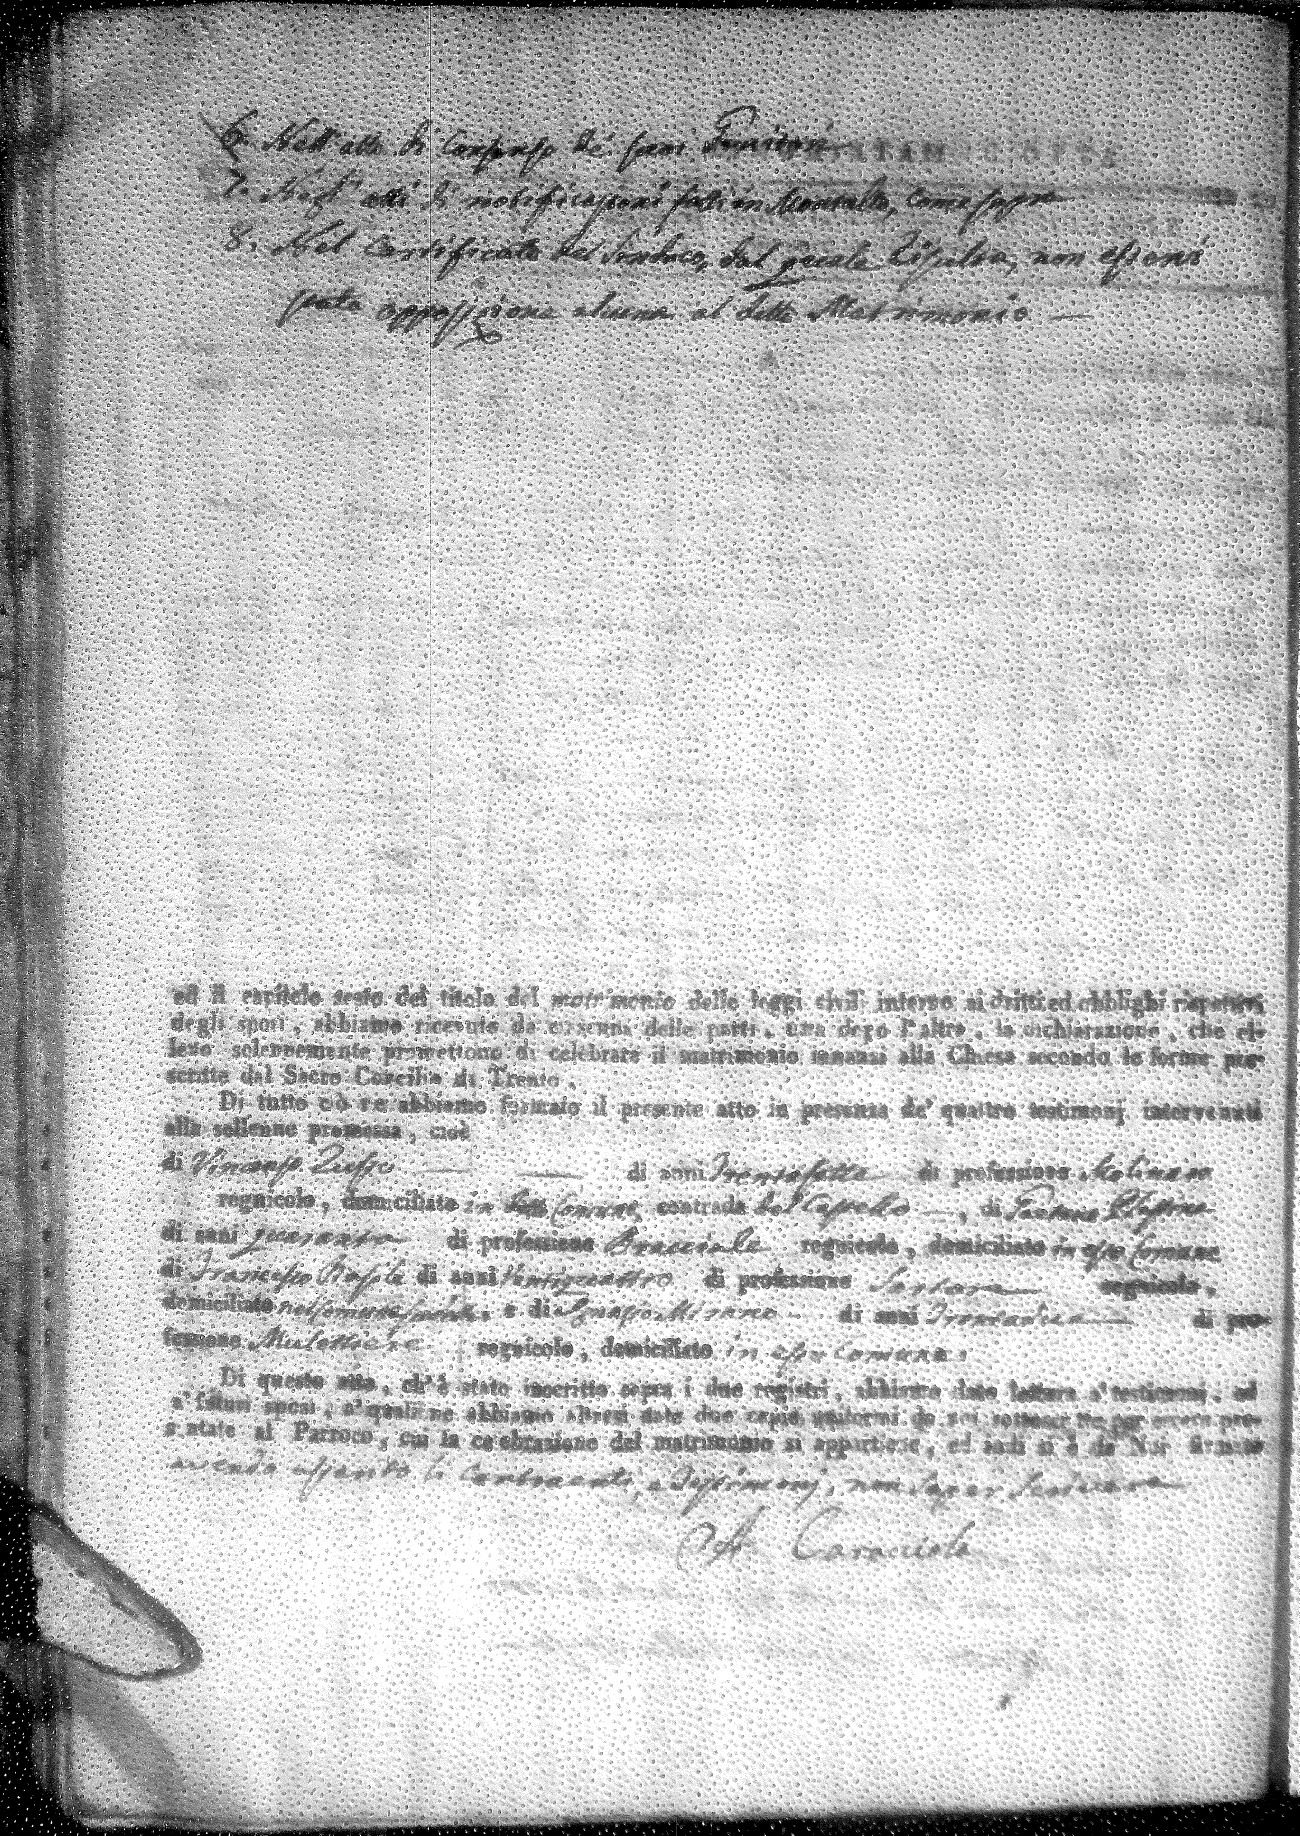 6. Nell'atto di Consenso de' suoi Genitori
7. Negl'atti di notificazioni fatti in Montalto, come sopra
8. Nel Certificato del Sindaco, dal quale risulta, non esservi
stata opposizione alcuna al detto Matrimonio —
ed il capitolo sesto del titolo del matrimonio delle leggi civili intorno ai dritti ed obblighi rispettivi
degli sposi, abbiamo ricevuto da ciascuna delle parti, una dopo l'altra, la dichiarazione, che el-
leno solennemente promettono di celebrare il matrimonio innanzi alla Chiesa secondo le forme pre-
scritte dal Sacro Concilio di Trento.
Di tutto ciò ne abbiamo formato il presente atto in presenza de' quattro testimonj intervenuti
alla sollenne promessa, cioè
di Vincenzo — — di anni Trentasette di professione Molinaro
regnicolo, domiciliato in detto Comune, contrada del —, di Gaetano
di anni quaranta di professione Bracciale regnicolo, domiciliato in esso Comune
di Francesco di anni Ventiquattro di professione Sartore regnicolo,
domiciliato nel Comune, e di Ignazio Misano di anni Trentadue — di pro-
fessione Mulettiere regnicolo, domiciliato in esso Comune.
Di questo atto, ch'è stato inscritto sopra i due registri, abbiamo dato lettura a' testimonj, ed
a' futuri sposi, a' quali ne abbiamo altresì date due copie uniformi da noi sottoscritte per essere pre-
sentate al Parroco, cui la celebrazione del matrimonio si appartiene, ed indi si è da Noi firmato
avendo asserito li Contraenti, e Testimonj, non saper Scrivere
Caracciolo